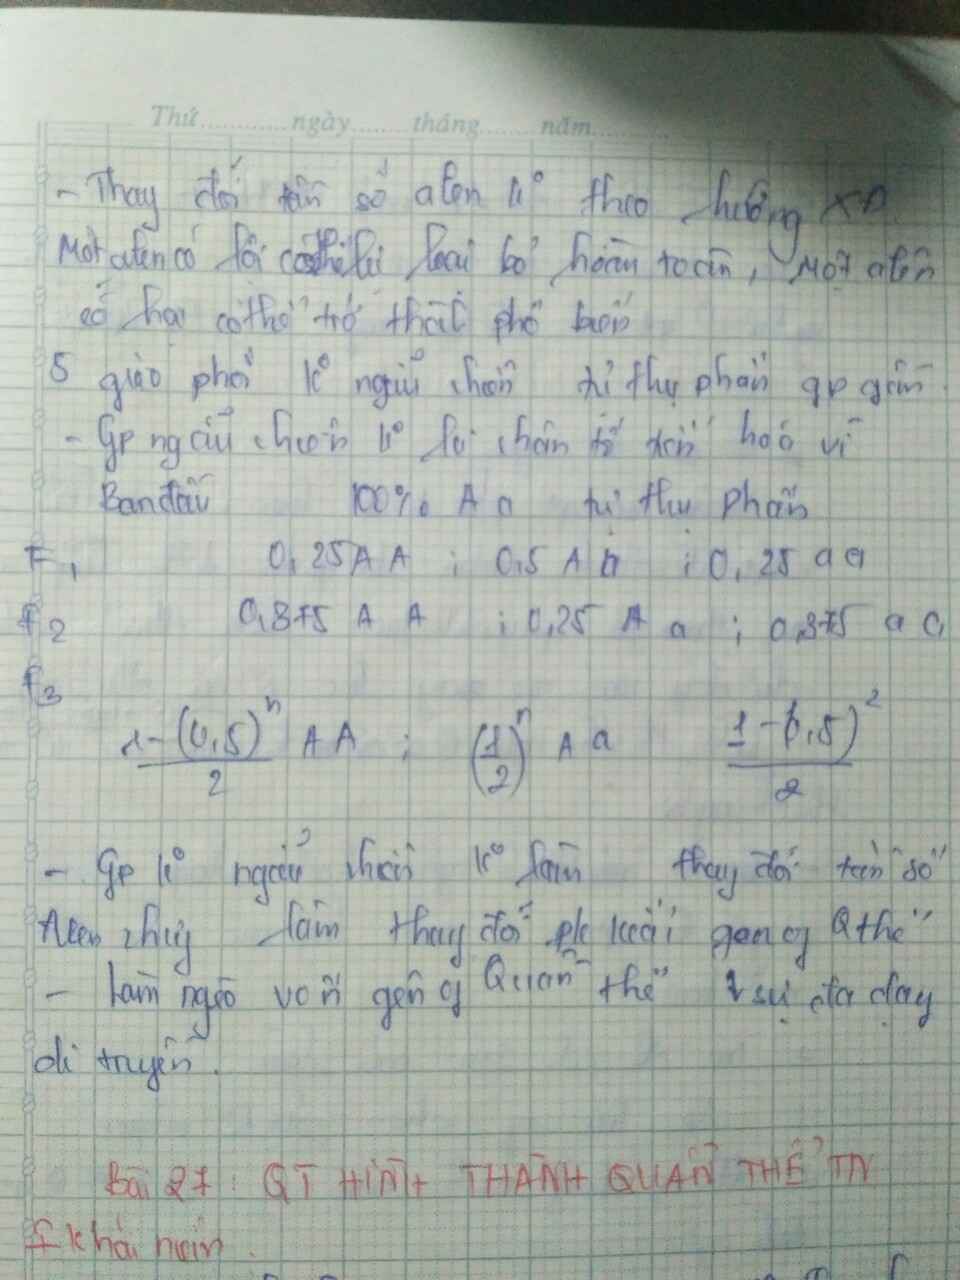 Thứ............ngày.......tháng.......năm...........
- Thay đổi tần số alen k° theo hướng XĐ
Một alen có lợi có thể bị loại bỏ hoàn toàn, Một alen
có hại có thể trở thành phổ biến
5 giao phối k° ngẫu nhiên tự thụ phấn gp gần
- Gp ngẫu nhiên k° là nhân tố tiến hoá vì
Ban đầu 100% A a tự thụ phấn
F1 0,25 A A ; 0,5 A a ; 0,25 a a
F2 0,375 A A ; 0,25 A a ; 0,375 a a
F3
(1-(0,5)^n)/2 A A ; (1/2)^n A a (1-(0,5)^2)/2
- Gp k° ngẫu nhiên k° làm thay đổi tần số
Alen nhưng làm thay đổi kiểu gen Qthể
- Làm nghèo vốn gen Quần thể sự đa dạng
di truyền.
Bài 27: QT HÌNH THÀNH QUẦN THỂ TN
I khái niệm.